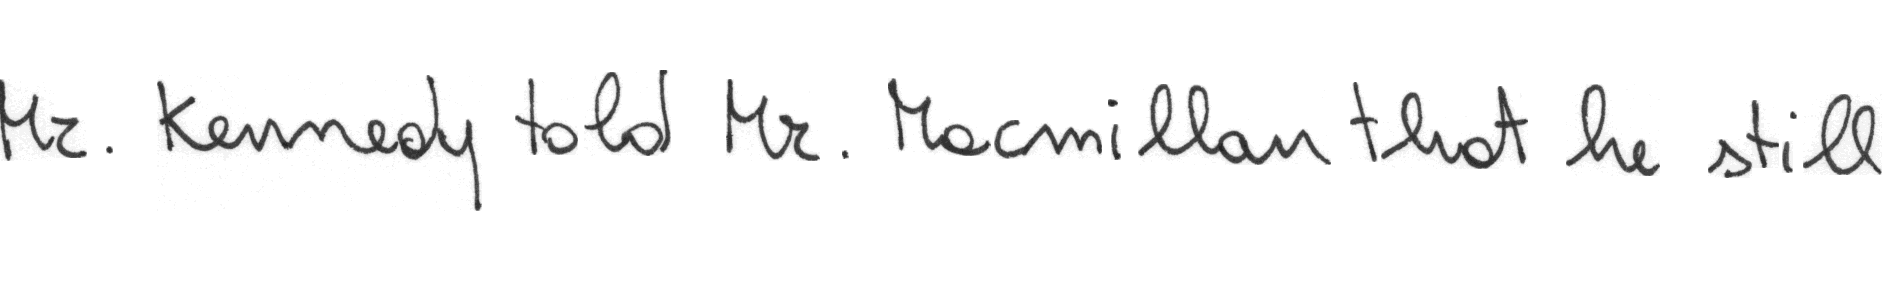 Mr. Kennedy told Mr. Macmillan that he still